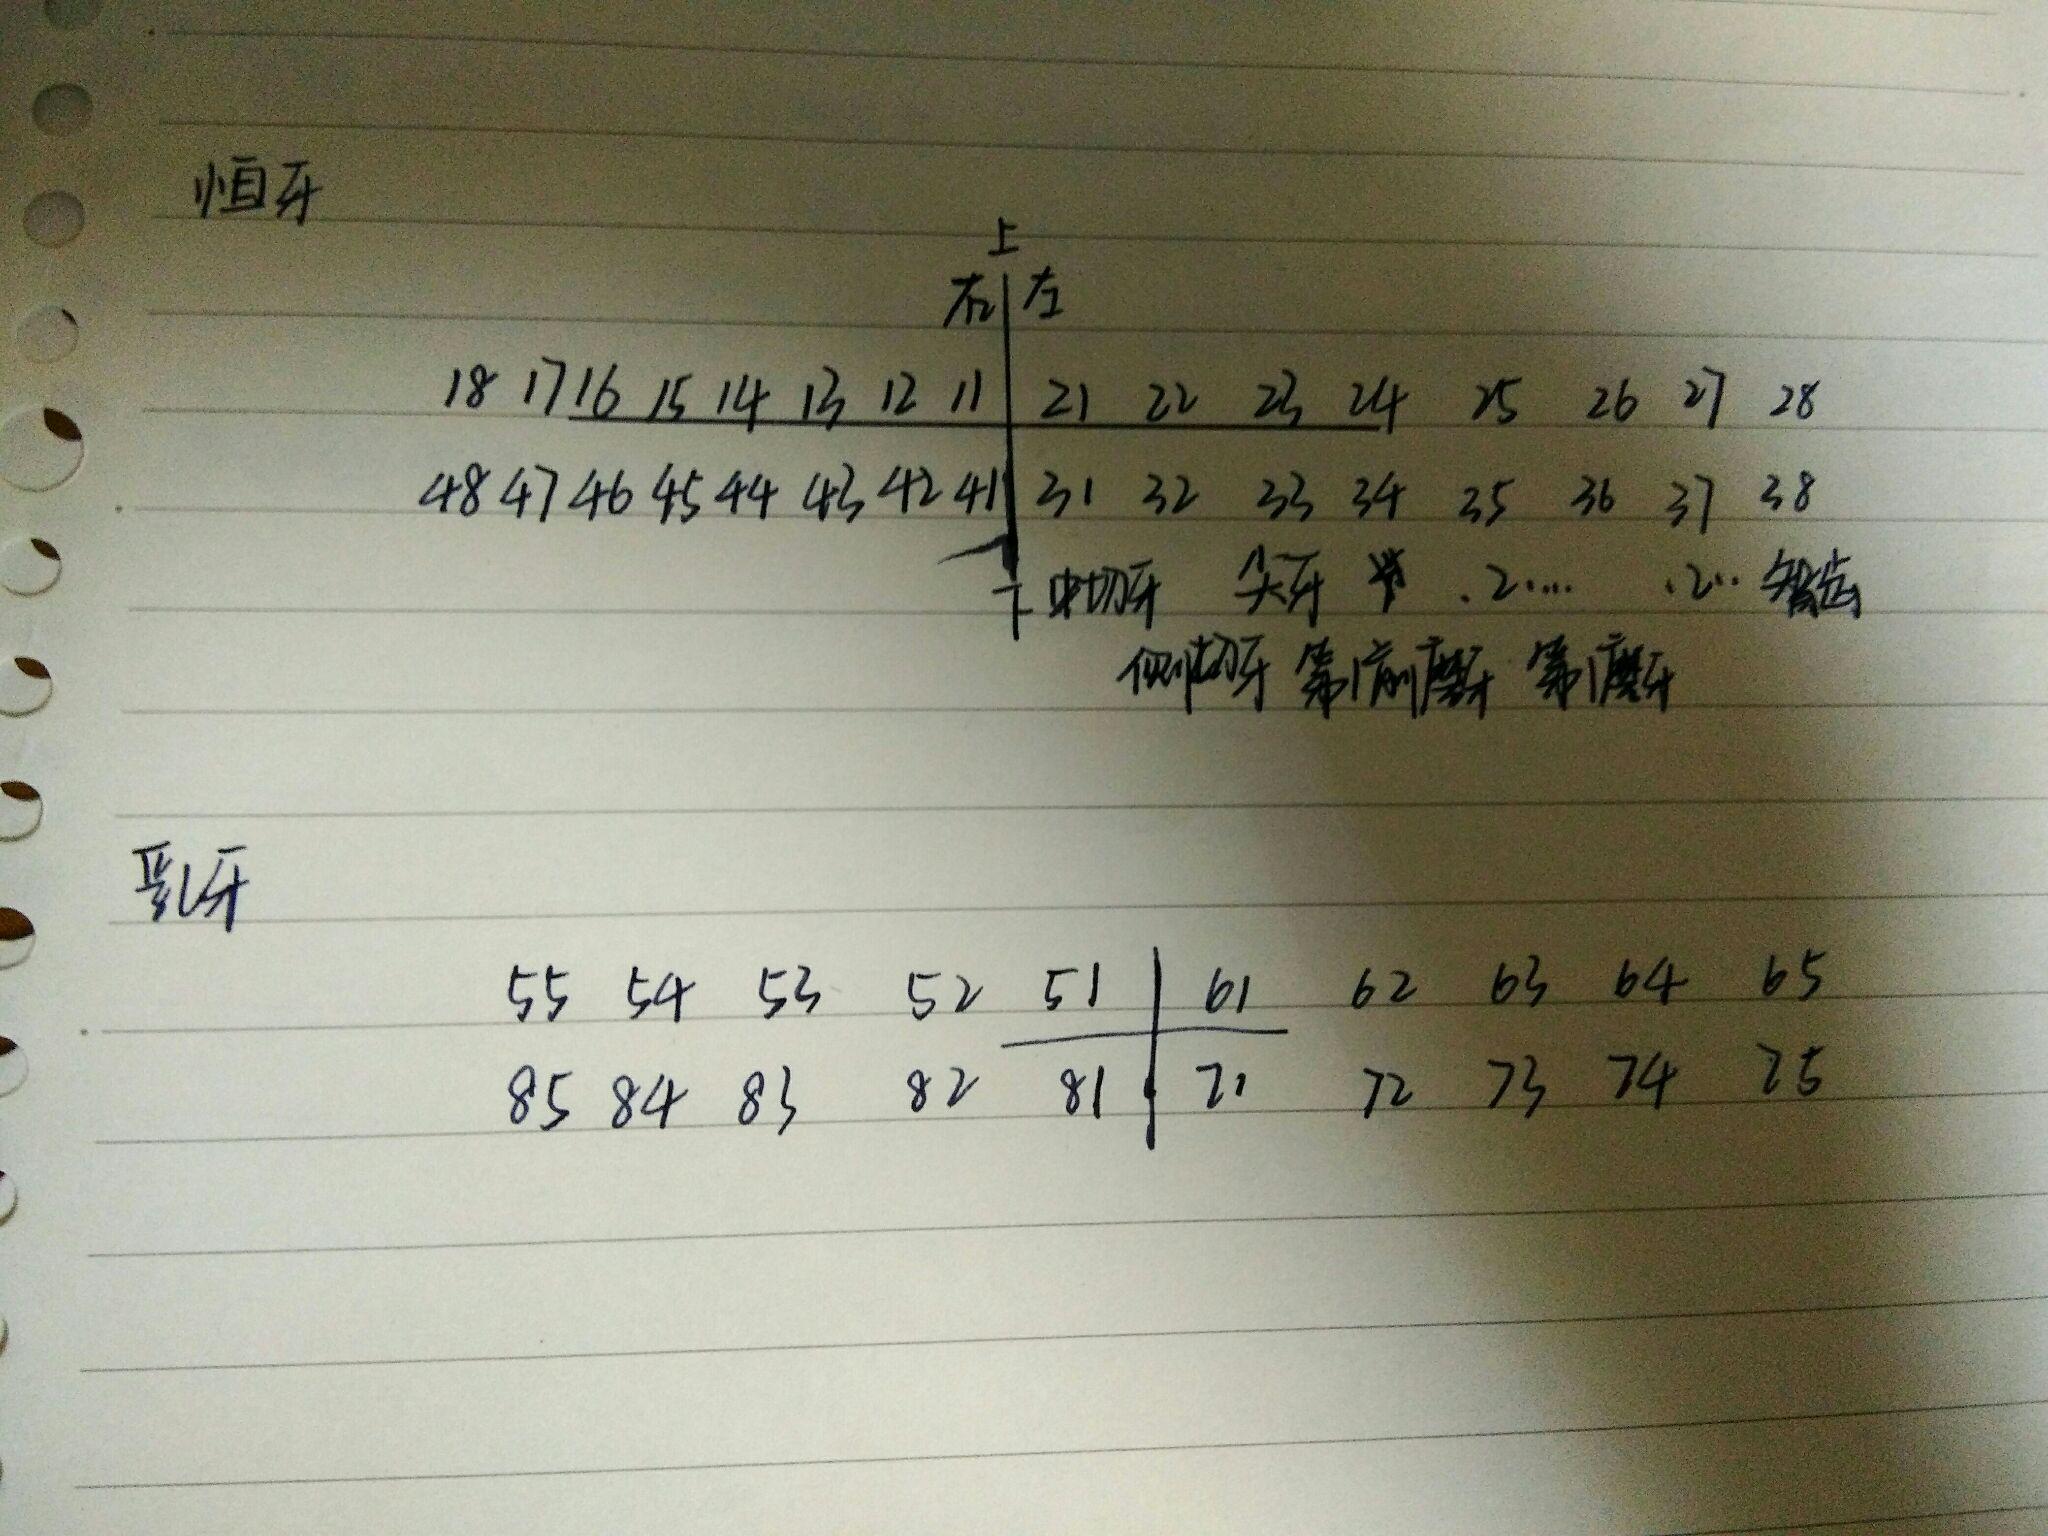 恒牙
上
右 左
18 17 16 15 14 13 12 11 21 22 23 24 25 26 27 28
48 47 46 45 44 43 42 41 31 32 33 34 35 36 37 38
下 中切牙 尖牙 .2.... .2.. 智齿
侧切牙 第1前磨牙 第1磨牙
乳牙
55 54 53 52 51 61 62 63 64 65
85 84 83 82 81 71 72 73 74 75